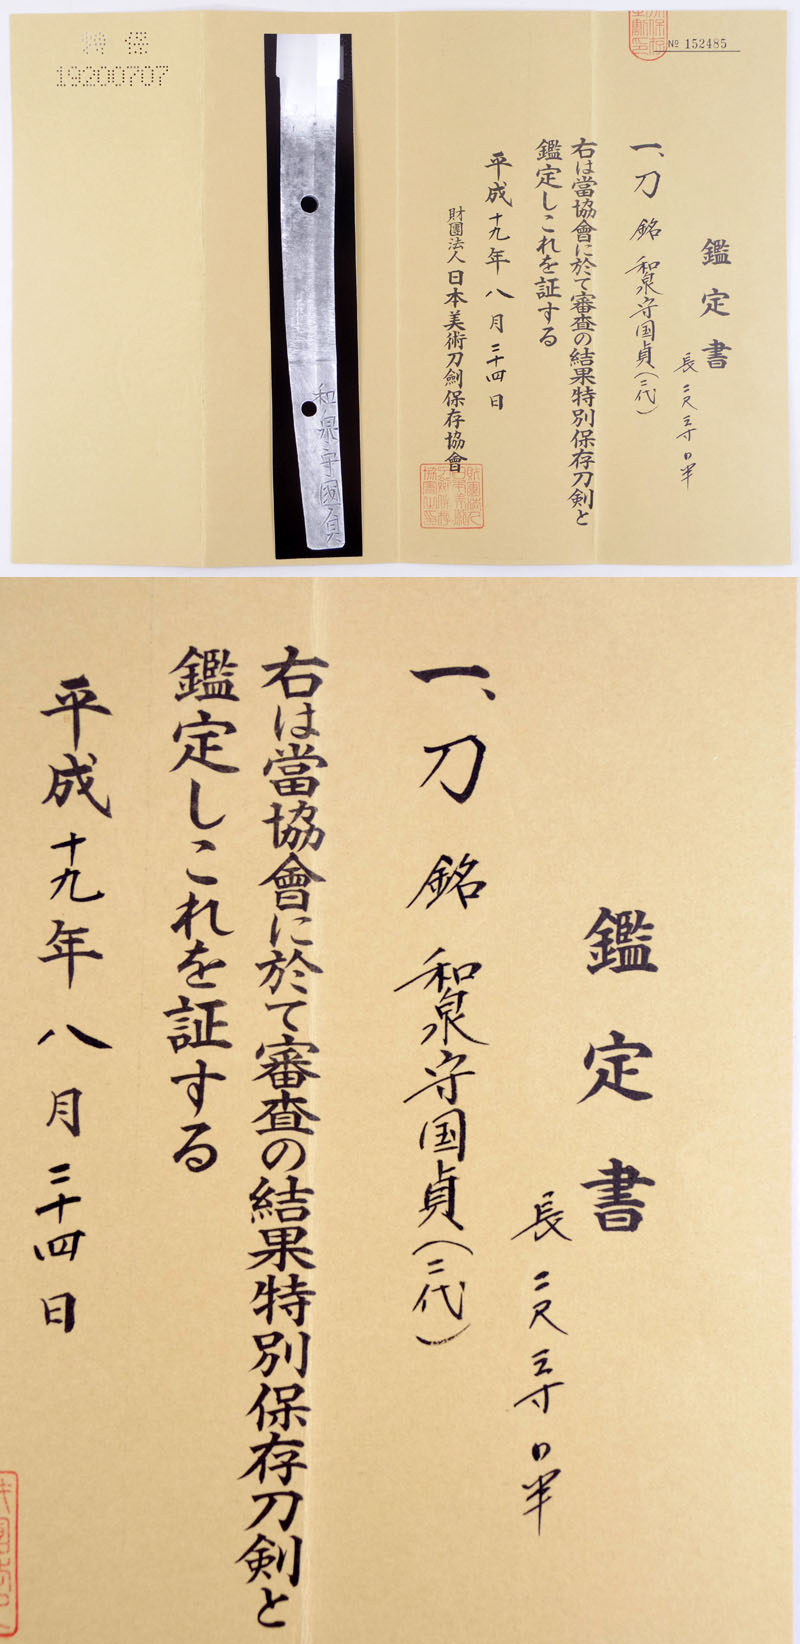 特 保
19200707
和泉守國貞
№ 152485
鑑定書
長 二尺三寸口半
一、刀 銘 和泉守国貞(二代)
右は當協會に於て審査の結果特別保存刀剣と
鑑定しこれを証する
平成十九年八月二十四日
財團法人 日本美術刀劍保存協會
鑑定書
長 二尺三寸口半
一、刀 銘 和泉守国貞(二代)
右は當協會に於て審査の結果特別保存刀剣と
鑑定しこれを証する
平成十九年八月二十四日